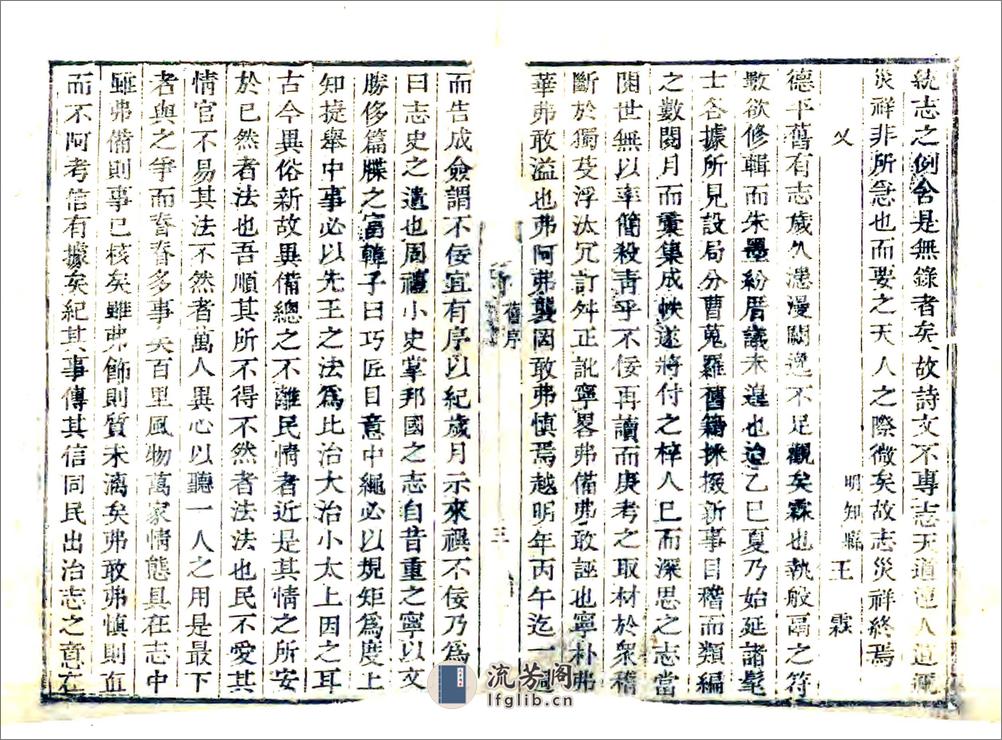 統志之例舍是無錄者矣故詩文不專志天道遠人道邇
災祥非所急也而要之天人之際微矣故志災祥終焉
又 明知縣王霖
德平舊有志歲久漶漫闕逸不足觀矣霖也執殷鬲之符
數欲修輯而朱墨紛厝議未遑也迨乙巳夏乃始延諸髦
士各據所見設局分曹蒐羅舊籍採掇新事目稽而類編
之數閱月而彙集成帙遂將付之梓人已而深思之志當
閱世無以率簡殺青乎不佞再讀而庚考之取材於衆稽
斷於獨芟浮汰冗訂舛正訛寧畧弗備弗敢誣也寧朴弗
華弗敢溢也弗阿弗襲罔敢弗慎焉越明年丙午迄一週
舊序
三
而告成僉謂不佞宜有序以紀歲月示來禩不佞乃爲
曰志史之遺也周禮小史掌邦國之志自昔重之寧以文
勝侈篇牒之富韓子曰巧匠目意中繩必以規矩爲度上
知捷舉中事必以先王之法爲比治大治小太上因之耳
古今異俗新故異備總之不離民情者近是其情之所安
於已然者法也吾順其所不得不然者法也民不愛其
情官不易其法不然者萬人異心以聽一人之用是最下
者與之爭而舂舂多事矣百里風物萬家情態具在志中
雖弗備則事已核矣雖弗飾則質未漓矣弗敢弗慎則直
而不阿考信有據矣紀其事傳其信同民出治志之意在
流芳阁
lfglib.cn